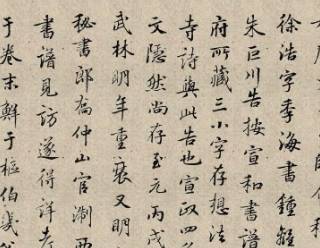 徐浩字季海書鍾離
朱巨川告按宣和書譜
府所藏三小字存想法
寺詩與此告也宣政四
文隱然尚存至元丙戌
武林明年重裝又明
秘書郎喬仲山官淛西
書譜見訪遂得詳考
于卷末鮮于樞伯幾